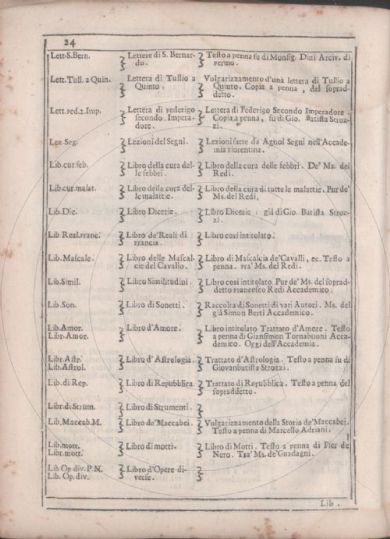 24
Lett-S.Bern. Lettere di S. Bernardo. Testo a penna fu di Monsig. Dini Arciv. di Fermo.
Lett. Tull. a Quin. Lettera di Tullio a Quinto. Volgarizzamento d'una lettera di Tullio a Quinto. Copia a penna, del sopraddetto.
Lett. red. 2. Imp. Lettera di Federigo secondo Imperadore. Lettera di Federigo Secondo Imperadore. Copia a penna, fu di Gio. Batista Strozzi.
Lez. Seg. Lezioni del Segni. Lezioni fatte da Agnol Segni nell'Accademia Fiorentina.
Lib. cur. feb. Libro della cura delle febbri. Libro della cura delle febbri. De' Ms. del Redi.
Lib. cur. malat. Libro della cura delle malattie. Libro della cura di tutte le malattie. Pur de' Ms. del Redi.
Lib. Dic. Libro Dicerie. Libro Dicerie, già di Gio. Batista Strozzi.
Lib Real. Franc. Libro de' Reali di Francia. Libro così intitolato.
Lib. Mascalc. Libro delle Mascalcie del Cavallo. Libro di Mascalcia de' Cavalli, ec. Testo a penna. Fra' Ms. del Redi.
Lib. Simil. Libro Similitudini. Libro così intitolato. Pur de' Ms. del sopraddetto Francesco Redi Accademico.
Lib. Son. Libro di Sonetti. Raccolta di Sonetti di varj Autori. Ms. del già Simon Berti Accademico.
Lib. Amor.
Libr. Amor. Libro d'Amore. Libro intitolato Trattato d'Amore. Testo a penna di Giansimon Tornabuoni Accademico. Oggi dell'Accademia.
Libr. Astr.
Lib. Astrol. Libro d'Astrologia. Trattato d'Astrologia. Testo a penna fu di Giovanbatista Strozzi.
Lib. di Rep. Libro di Repubblica. Trattato di Repubblica. Testo a penna del sopraddetto.
Libr. di Strum. Libro di Strumenti.
Lib. Maccab. M. Libro de' Maccabei. Volgarizzamento della Storia de' Maccabei. Testo a penna di Marcello Adriani.
Lib. mott.
Libr. mott. Libro di motti. Libro di Motti. Testo a penna di Pier del Nero. Tra' Ms. de' Guadagni.
Lib Op div. P. N.
Lib. Op. div. Libro d'Opere diverse.
Lib.